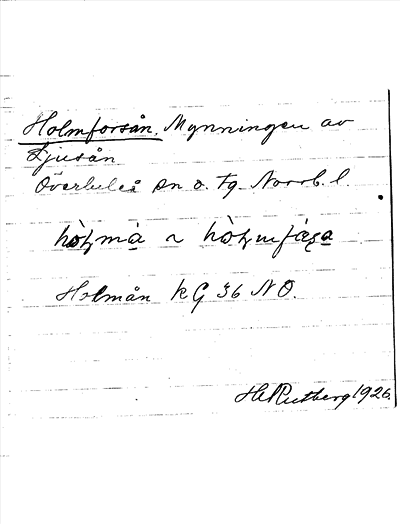 Holmforsån. Mynningen av
Ljusån
Överluleå sn o. tg. Norrb. l.
Holmån KG 36 NO.
H Rutberg 1926.